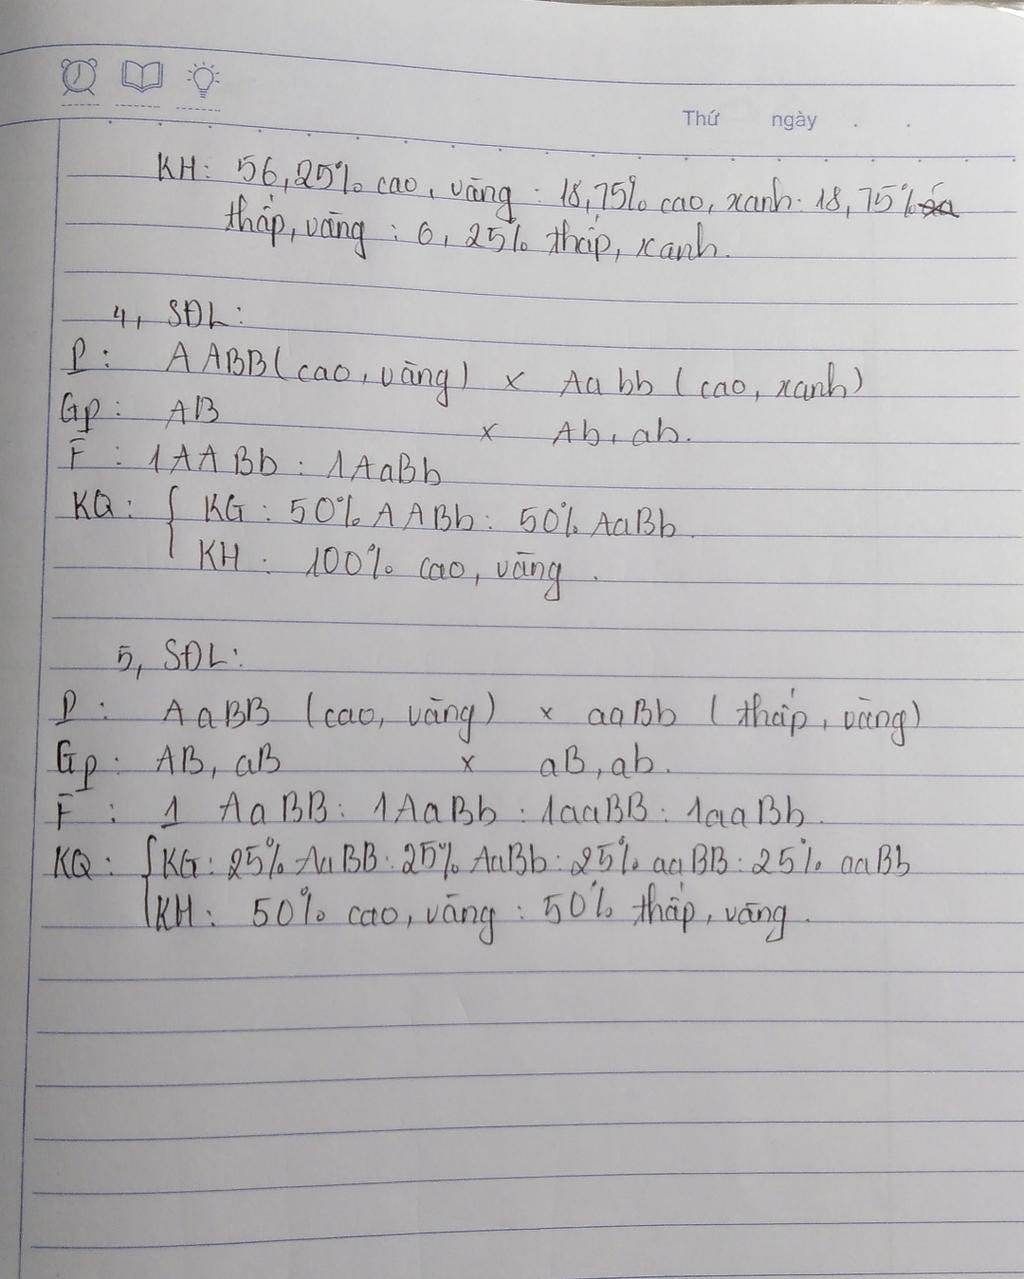 Thứ ngày . .
KH: 56,25% cao, vàng : 18,75% cao, xanh: 18,75%
thấp, vàng : 6,25% thấp, xanh.
4, SĐL:
P: AABB (cao, vàng) x Aabb (cao, xanh)
Gp: AB x Ab, ab.
F : 1AABb : 1AaBb
KQ: { KG : 50% AABb : 50% AaBb.
KH : 100% cao, vàng .
5, SĐL:
P : AaBB (cao, vàng) x aaBb (thấp, vàng)
Gp : AB, aB x aB, ab.
F : 1 AaBB : 1AaBb : 1aaBB : 1aaBb.
KQ : { KG : 25% AaBB : 25% AaBb : 25% aaBB : 25% aaBb
KH : 50% cao, vàng : 50% thấp, vàng .